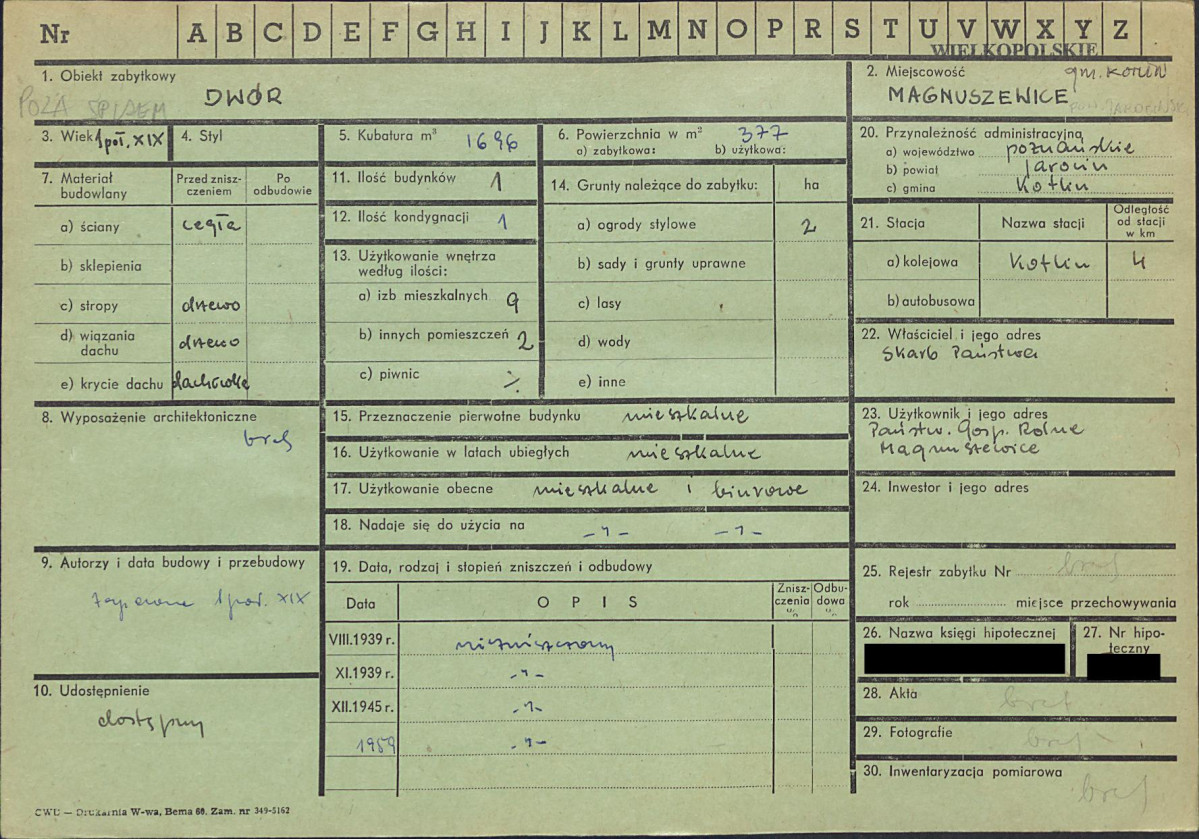 Nr A B C D E F G H I J K L M N O P R S T U V W X Y Z
WIELKOPOLSKIE
1. Obiekt zabytkowy
POZA SPISEM
DWÓR
2. Miejscowość
gm. KOTLIN
MAGNUSZEWICE
3. Wiek 1 poł. XIX
4. Styl
5. Kubatura m³ 1696
6. Powierzchnia w m² 377
a) zabytkowa: b) użytkowa:
20. Przynależność administracyjna
a) województwo poznańskie
b) powiat Jarocin
c) gmina Kotlin
7. Materiał budowlany
Przed zniszczeniem
Po odbudowie
a) ściany cegła
b) sklepienia
c) stropy drzewo
d) wiązania dachu drzewo
e) krycie dachu dachówka
11. Ilość budynków 1
12. Ilość kondygnacji 1
13. Użytkowanie wnętrza
według ilości:
a) izb mieszkalnych 9
b) innych pomieszczeń 2
c) piwnic ·/.
14. Grunty należące do zabytku: ha
a) ogrody stylowe 2
b) sady i grunty uprawne
c) lasy
d) wody
e) inne
21. Stacja Nazwa stacji Odległość od stacji w km
a) kolejowa Kotlin 4
b) autobusowa
22. Właściciel i jego adres
Skarb Państwa
8. Wyposażenie architektoniczne
brak
15. Przeznaczenie pierwotne budynku mieszkalne
16. Użytkowanie w latach ubiegłych mieszkalne
17. Użytkowanie obecne mieszkalne i biurowe
18. Nadaje się do użycia na -"- -"-
23. Użytkownik i jego adres
Państw. Gosp. Rolne
Magnuszewice
24. Inwestor i jego adres
9. Autorzy i data budowy i przebudowy
1 poł. XIX
10. Udostępnienie
dostępny
19. Data, rodzaj i stopień zniszczeń i odbudowy
Data OPIS Zniszczenia % Odbudowa %
VIII.1939 r. niezniszczony
XI.1939 r. -"-
XII.1945 r. -"-
1959 -"-
25. Rejestr zabytku Nr brak
rok miejsce przechowywania
26. Nazwa księgi hipotecznej
27. Nr hipoteczny
28. Akta brak
29. Fotografie brak
30. Inwentaryzacja pomiarowa
brak
CWD — Drukarnia W-wa, Bema 60. Zam. nr 349-5162